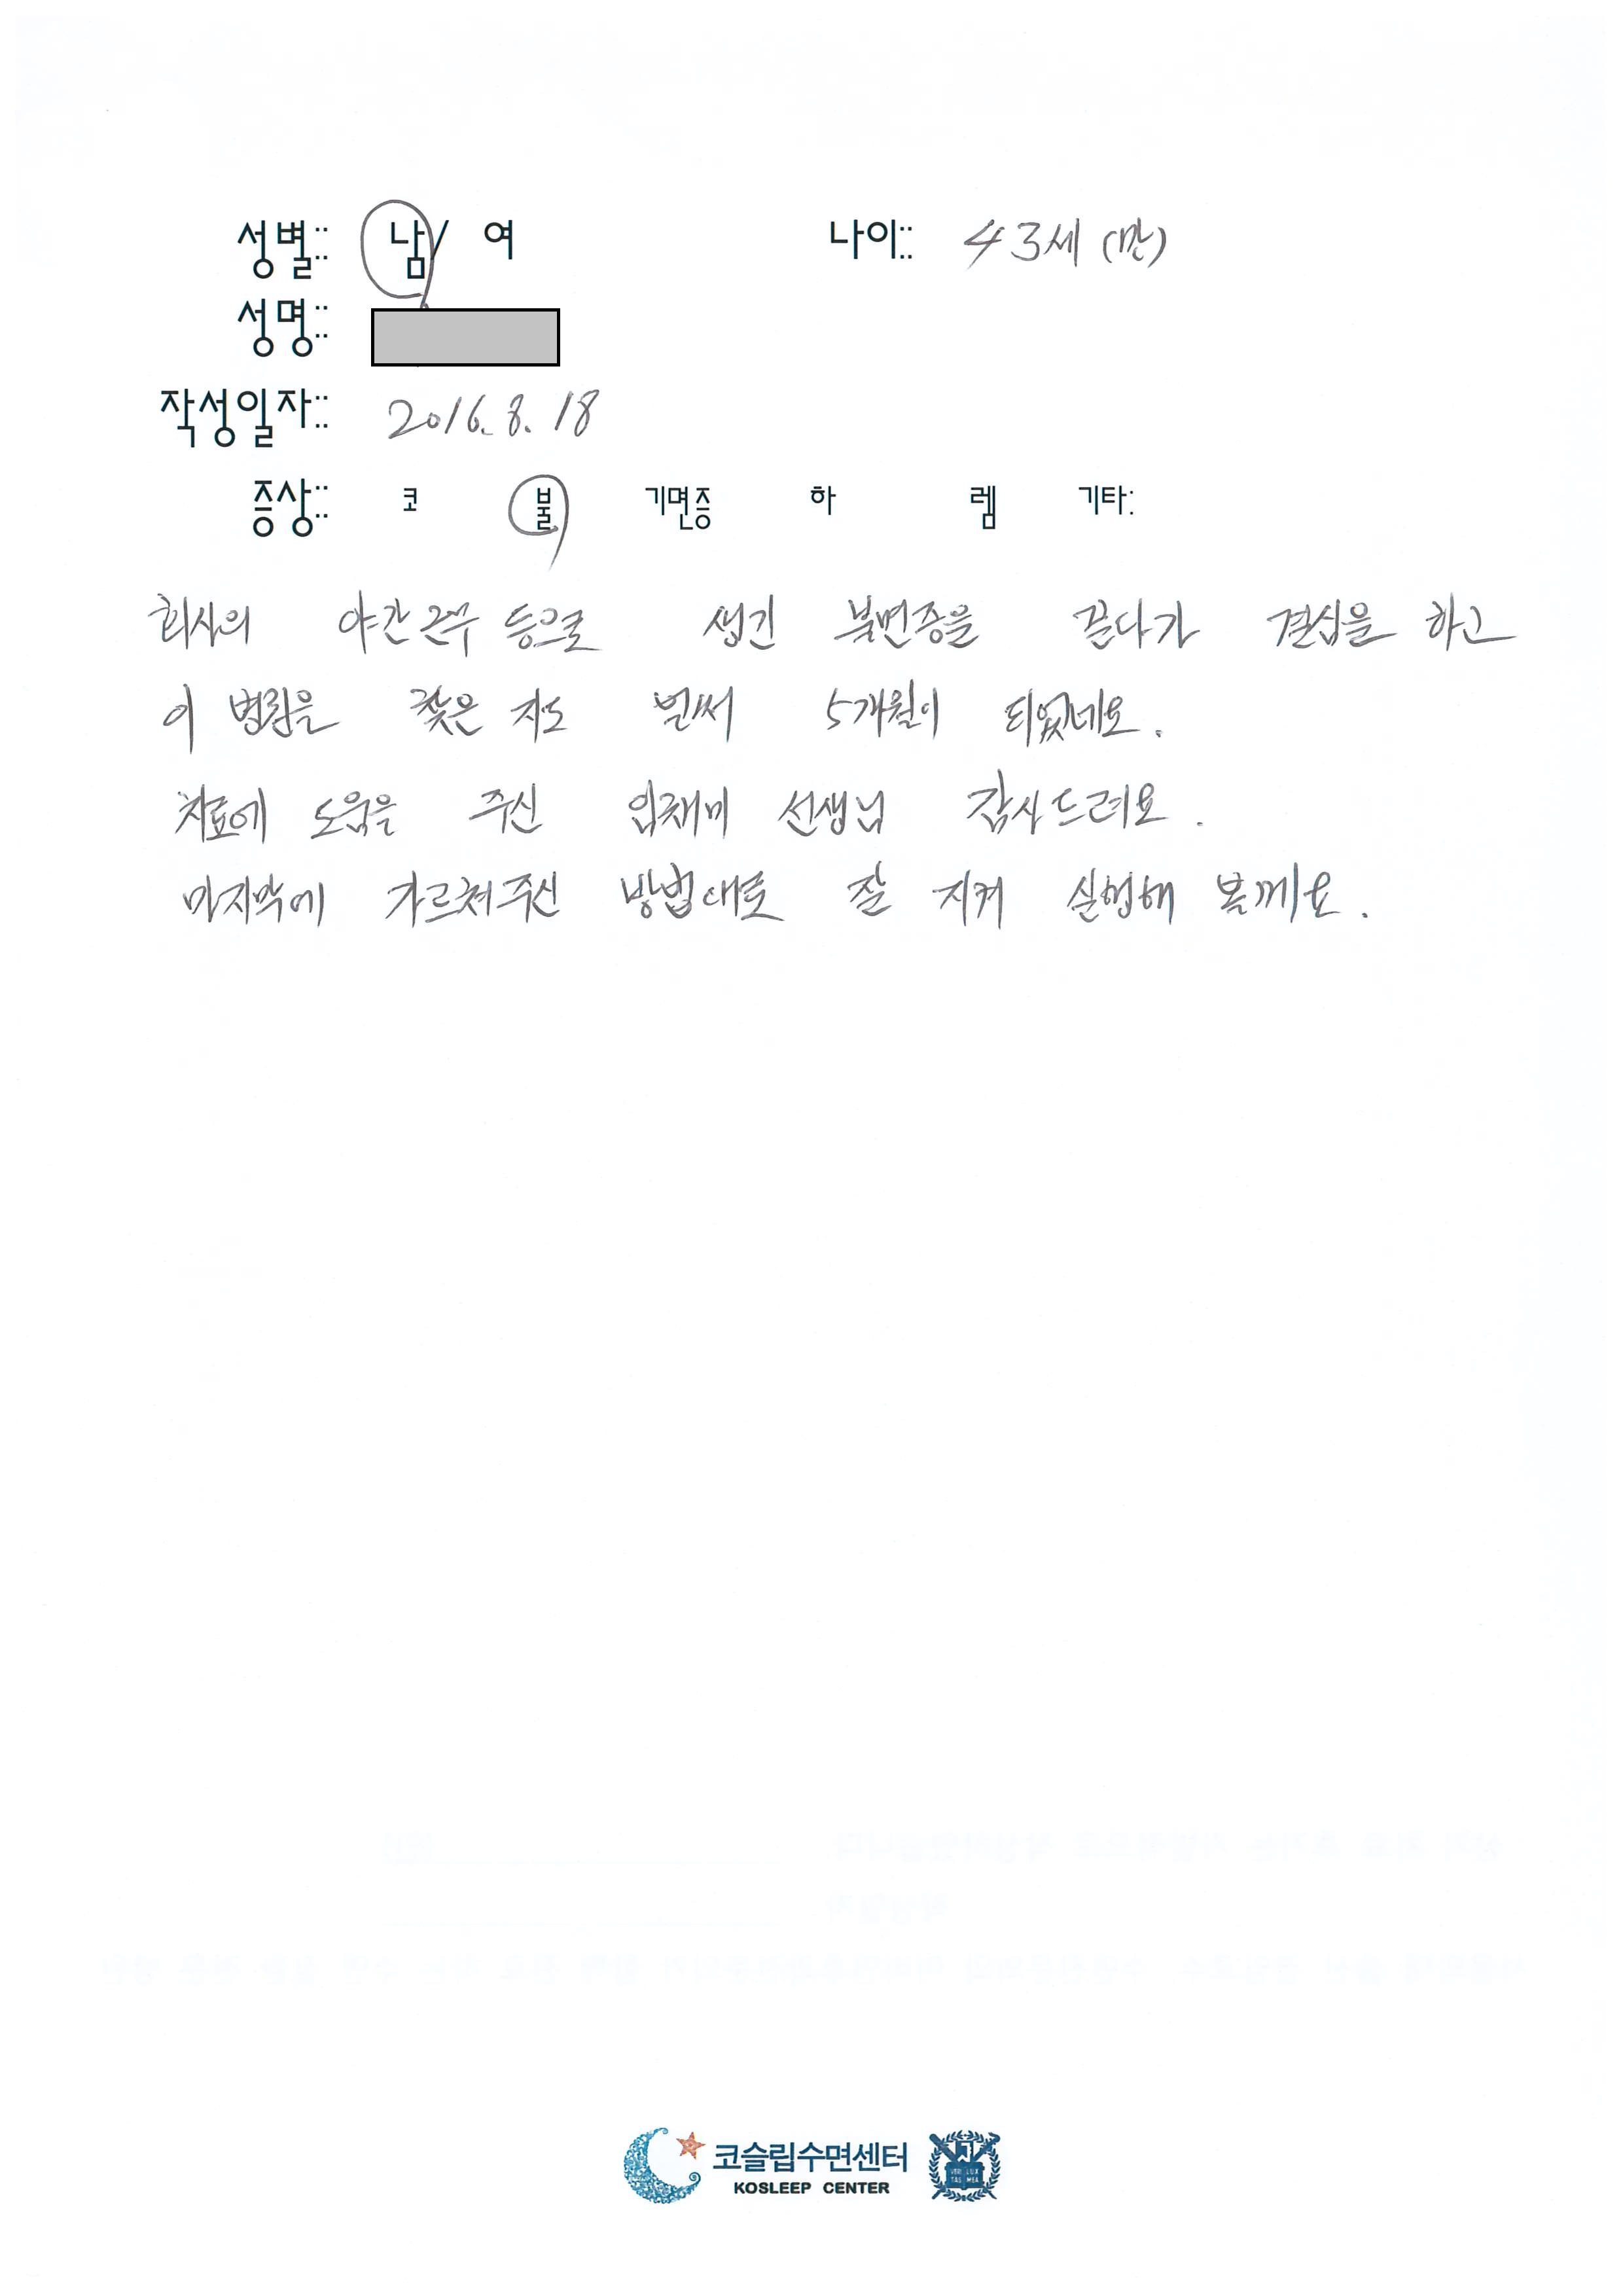 성별:: 남/ 여 나이:: 43세 (만)
성명::
작성일자:: 2016. 8. 18
증상:: 코 불 기면증 하 렘 기타:
회사의 야간근무 등으로 생긴 불면증을 끌다가 결심을 하고
이 병원을 찾은 지도 벌써 5개월이 되었네요.
치료에 도움을 주신 임채미 선생님 감사드려요.
마지막에 가르쳐주신 방법대로 잘 지켜 실행해 볼께요.
코슬립수면센터
KOSLEEP CENTER